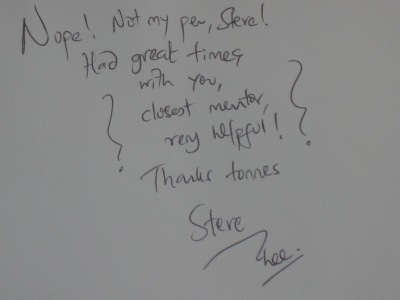 Nope! Not my pen, Steve!
Had great times
with you,
closest mentor,
very helpful!
Thanks tonnes
Steve
Lee.